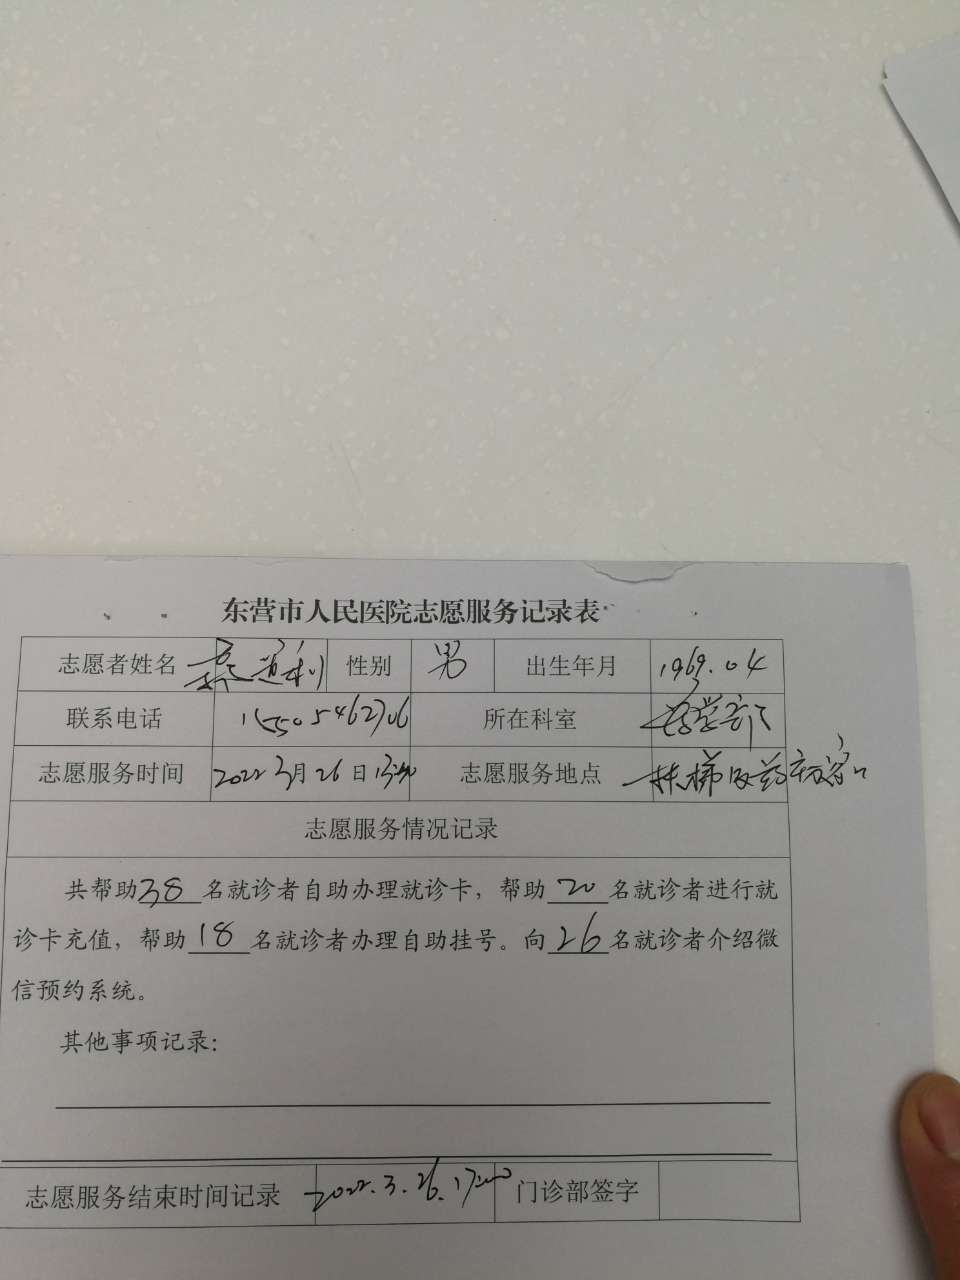 东营市人民医院志愿服务记录表
志愿者姓名 性别 男 出生年月 1969.04
联系电话 15505462706 所在科室 药学部
志愿服务时间 2022年3月26日13:30 志愿服务地点 扶梯及药房窗口
志愿服务情况记录
共帮助38名就诊者自助办理就诊卡，帮助20名就诊者进行就
诊卡充值，帮助18名就诊者办理自助挂号。向26名就诊者介绍微
信预约系统。
其他事项记录：
志愿服务结束时间记录 2022.3.26.17:00 门诊部签字